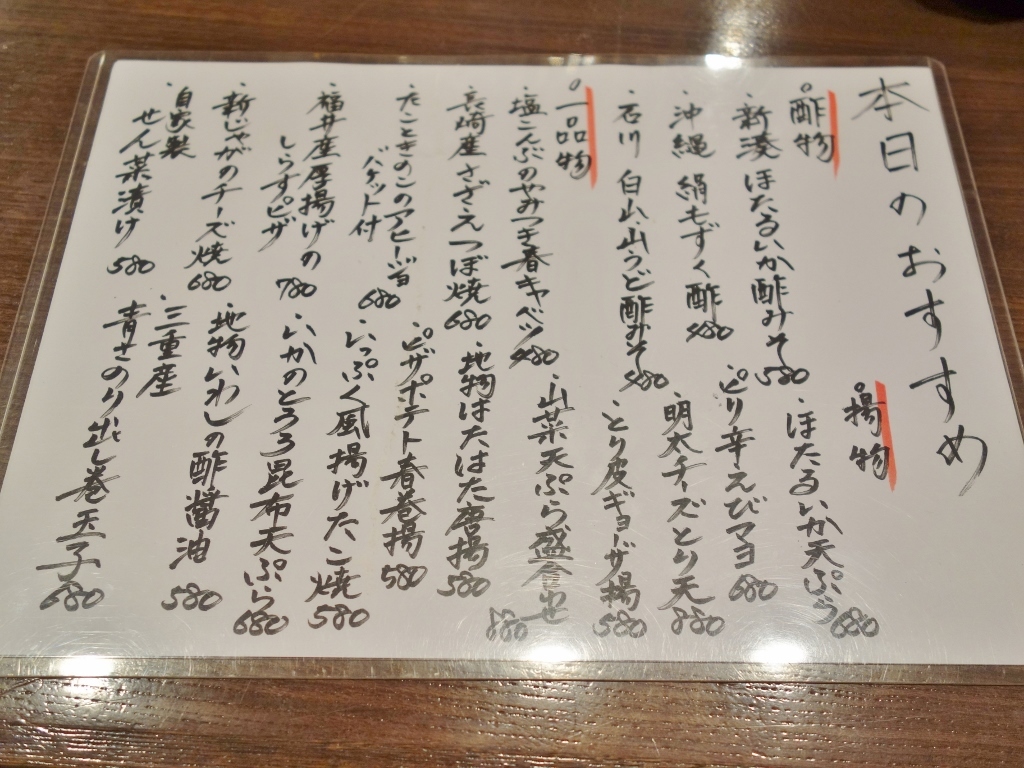 本日のおすすめ
。酢物
・新湊ほたるいか酢みそ 580
・沖縄 絹もずく酢 480
・石川 白山山うど酢みそ 480
。一品物
・塩こんぶのやみつき春キャベツ 480
・長崎産さざえつぼ焼 680
・たこときのこのアヒージョ
バケット付 680
・福井産厚揚げの
しらすピザ 780
・新じゃがのチーズ焼 680
・自家製
せん菜漬け 580
。揚物
・ほたるいか天ぷら 680
・ピリ辛えびマヨ 680
・明太チーズとり天 880
・とり皮ギョーザ揚 580
・山菜天ぷら盛合せ 880
・地物はたはた唐揚 580
・ピザポテト春巻揚 580
・いっぷく風揚げたこ焼 580
・いかのとろろ昆布天ぷら 680
・地物いわしの酢醤油 580
・三重産
青さのり出し巻玉子 680